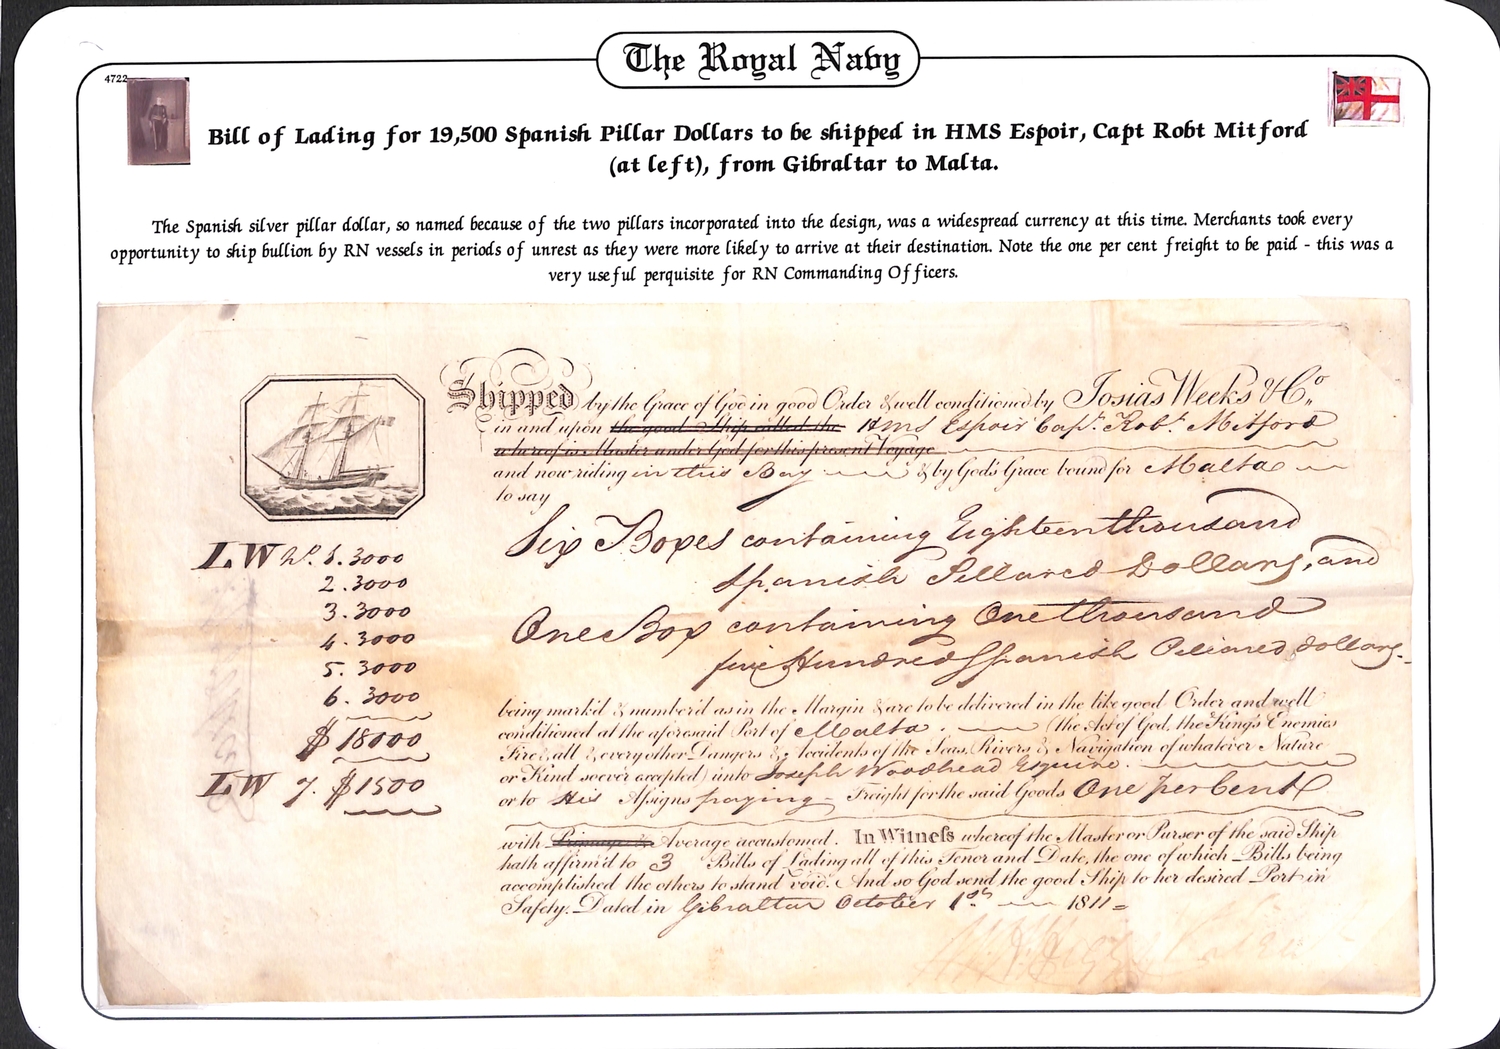 The Royal Navy
4722
Bill of Lading for 19,500 Spanish Pillar Dollars to be shipped in HMS Espoir, Capt Robt Mitford
(at left), from Gibraltar to Malta.
The Spanish silver pillar dollar, so named because of the two pillars incorporated into the design, was a widespread currency at this time. Merchants took every
opportunity to ship bullion by RN vessels in periods of unrest as they were more likely to arrive at their destination. Note the one per cent freight to be paid - this was a
very useful perquisite for RN Commanding Officers.
Shipped by the Grace of God in good Order & well conditioned by Josias Weeks & Co.
in and upon the good Ship called the Hms Espoir Capt. Robt. Mitford
whereof is Master under God for this present Voyage
and now riding in this Bay & by God's Grace bound for Malta
to say
Six Boxes containing Eighteen thousand
Spanish Pillared Dollars, and
One Box containing One thousand
five Hundred Spanish Pillared dollars.
LW No. 1. 3000
2. 3000
3. 3000
4. 3000
5. 3000
6. 3000
$ 18000
LW 7. $ 1500
being mark'd & number'd as in the Margin & are to be delivered in the like good Order and well
conditioned at the aforesaid Port of Malta (the Act of God, the King's Enemies
Fire & all & every other Dangers & Accidents of the Seas, Rivers & Navigation of whatever Nature
or Kind soever excepted) unto Joseph Woodhead Esquire.
or to His Assigns paying Freight for the said Goods One per Cent
with Primage & Average accustomed. In Witness whereof the Master or Purser of the said Ship
hath affirm'd to 3 Bills of Lading all of this Tenor and Date, the one of which Bills being
accomplished the others to stand void. And so God send the good Ship to her desired Port in
Safety. Dated in Gibraltar October 1st 1811